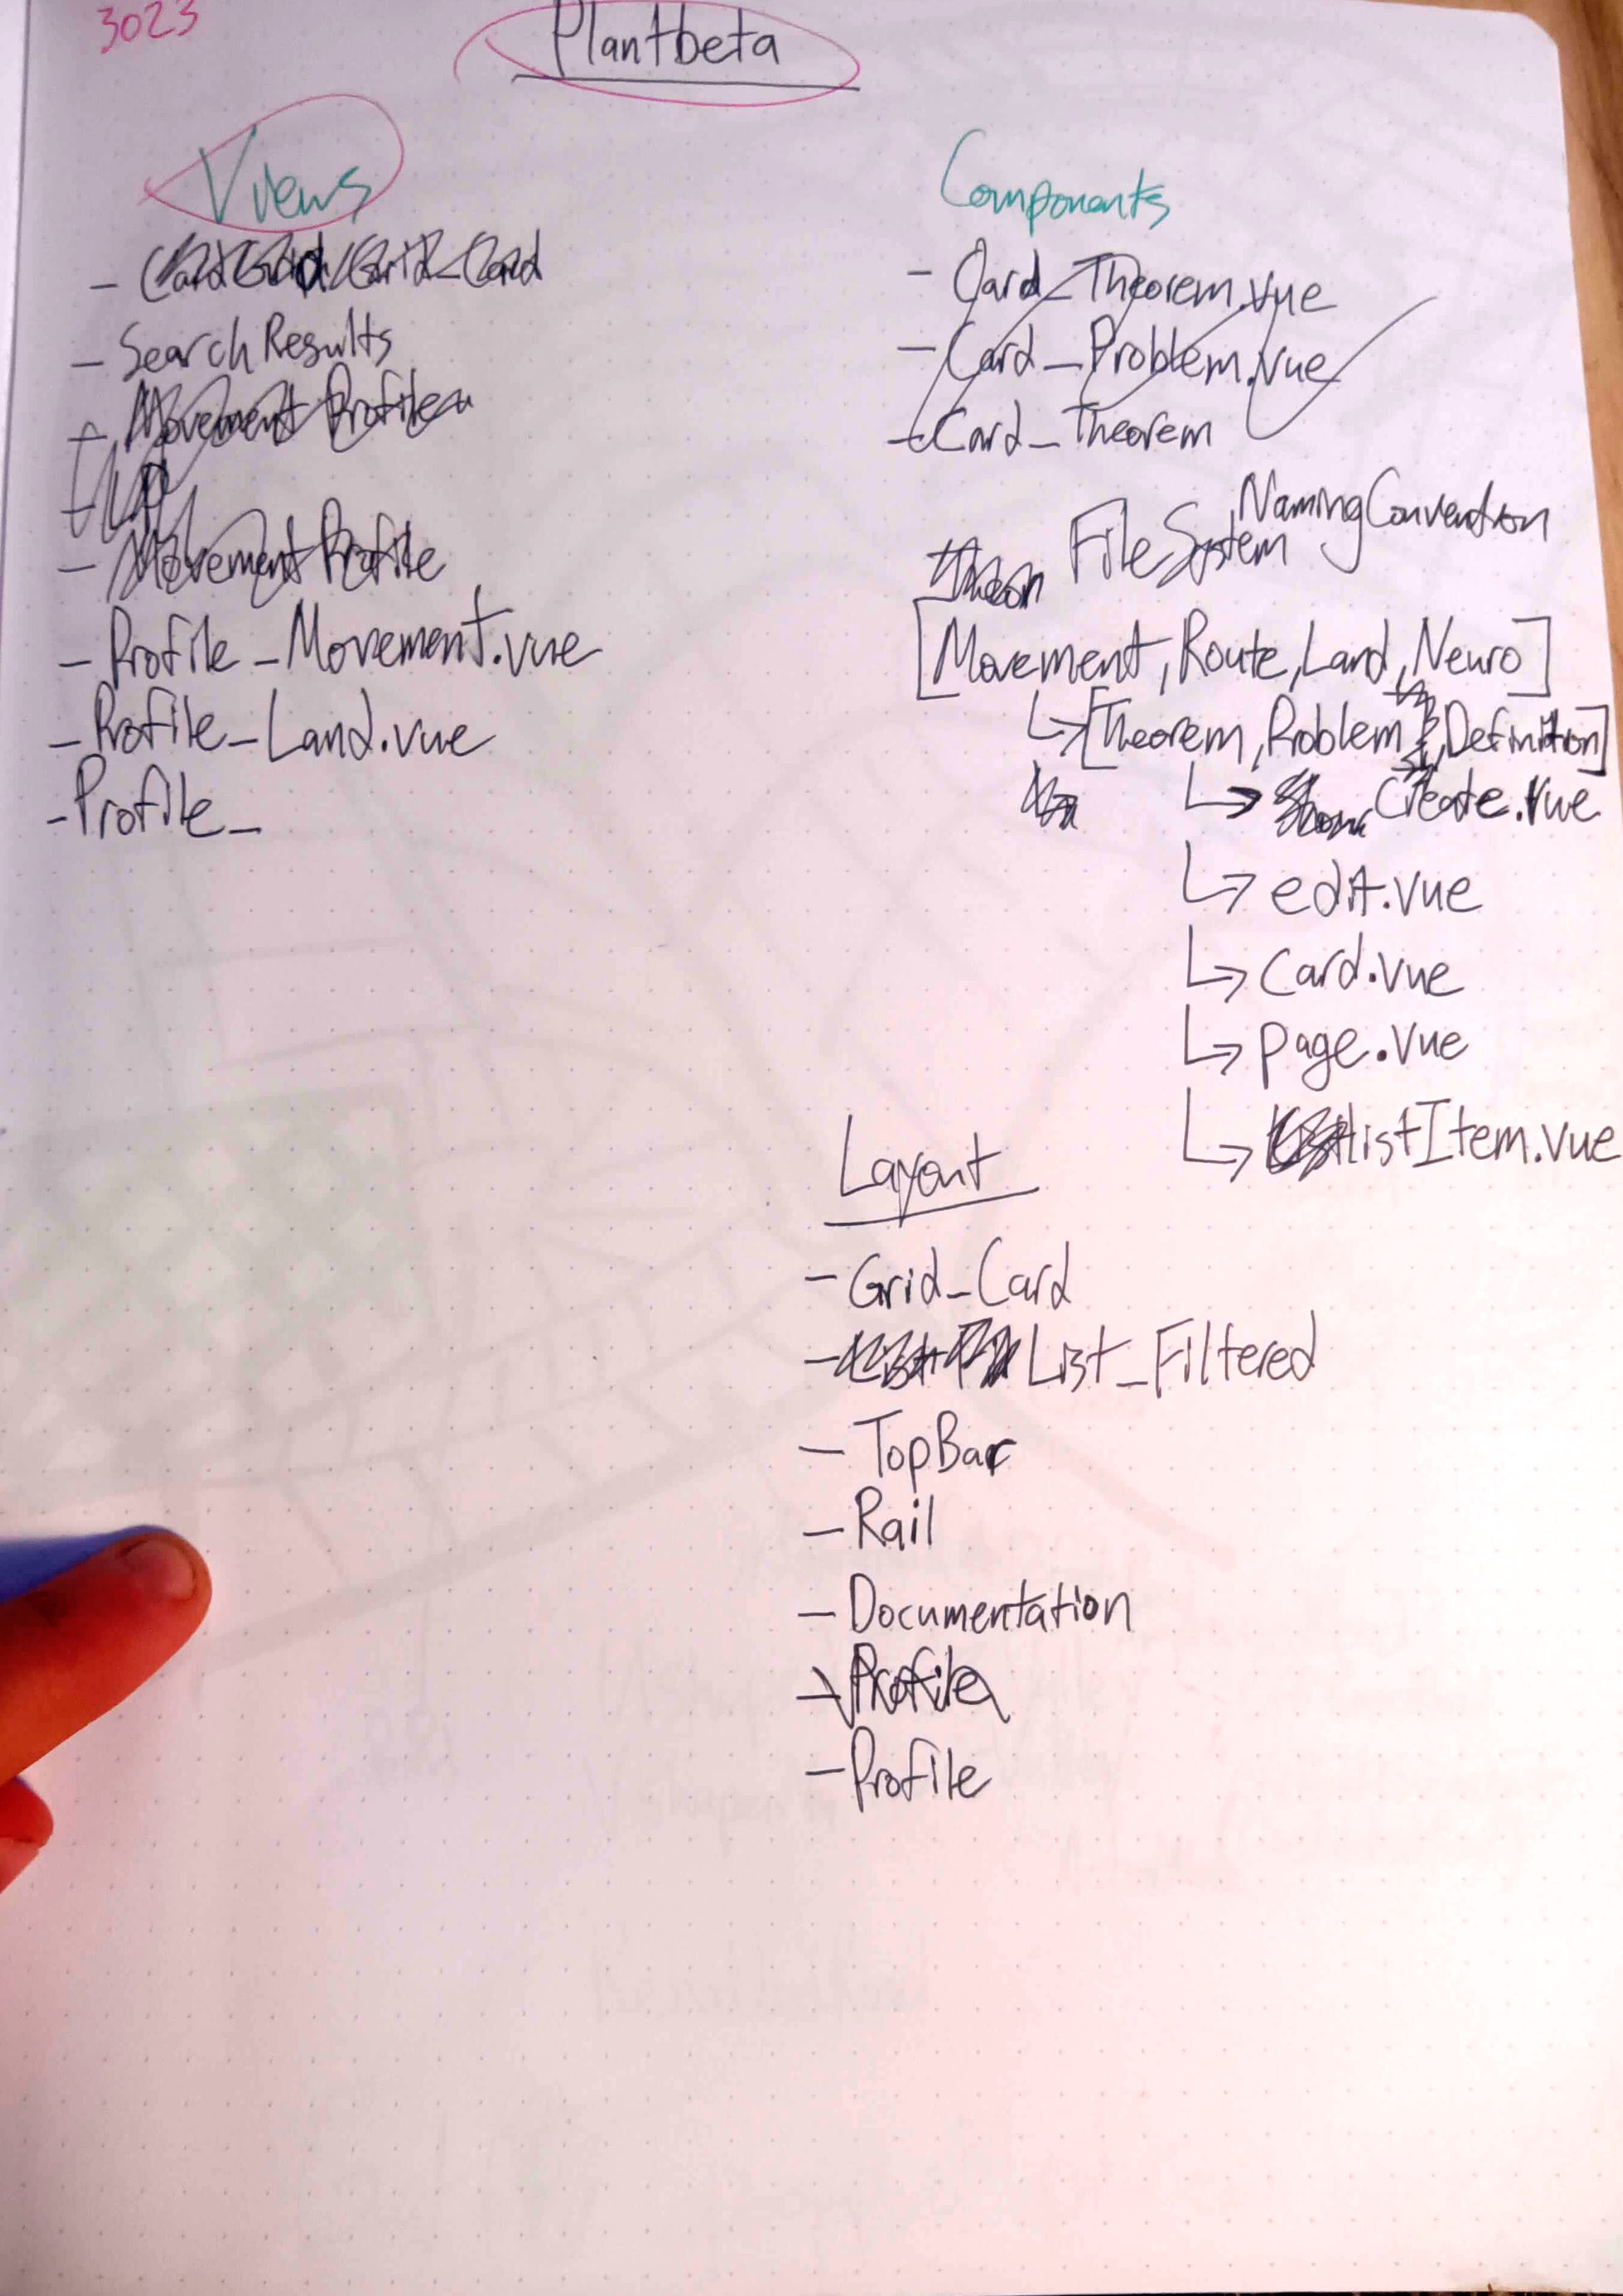 3023
Plantbeta
Views
- CardGrid/Grid_Card
- SearchResults
- Movement Profile
- MovementProfile
- Profile_Movement.vue
- Profile_Land.vue
- Profile_
Components
- Card_Theorem.vue
- Card_Problem.vue
- Card_Theorem
FileSystem NamingConvention
[Movement, Route, Land, Neuro]
↳ [Theorem, Problem, Definition]
↳ Create.vue
↳ edit.vue
↳ Card.vue
↳ page.vue
↳ listItem.vue
Layout
- Grid_Card
- List_Filtered
- TopBar
- Rail
- Documentation
- Profile
- Profile